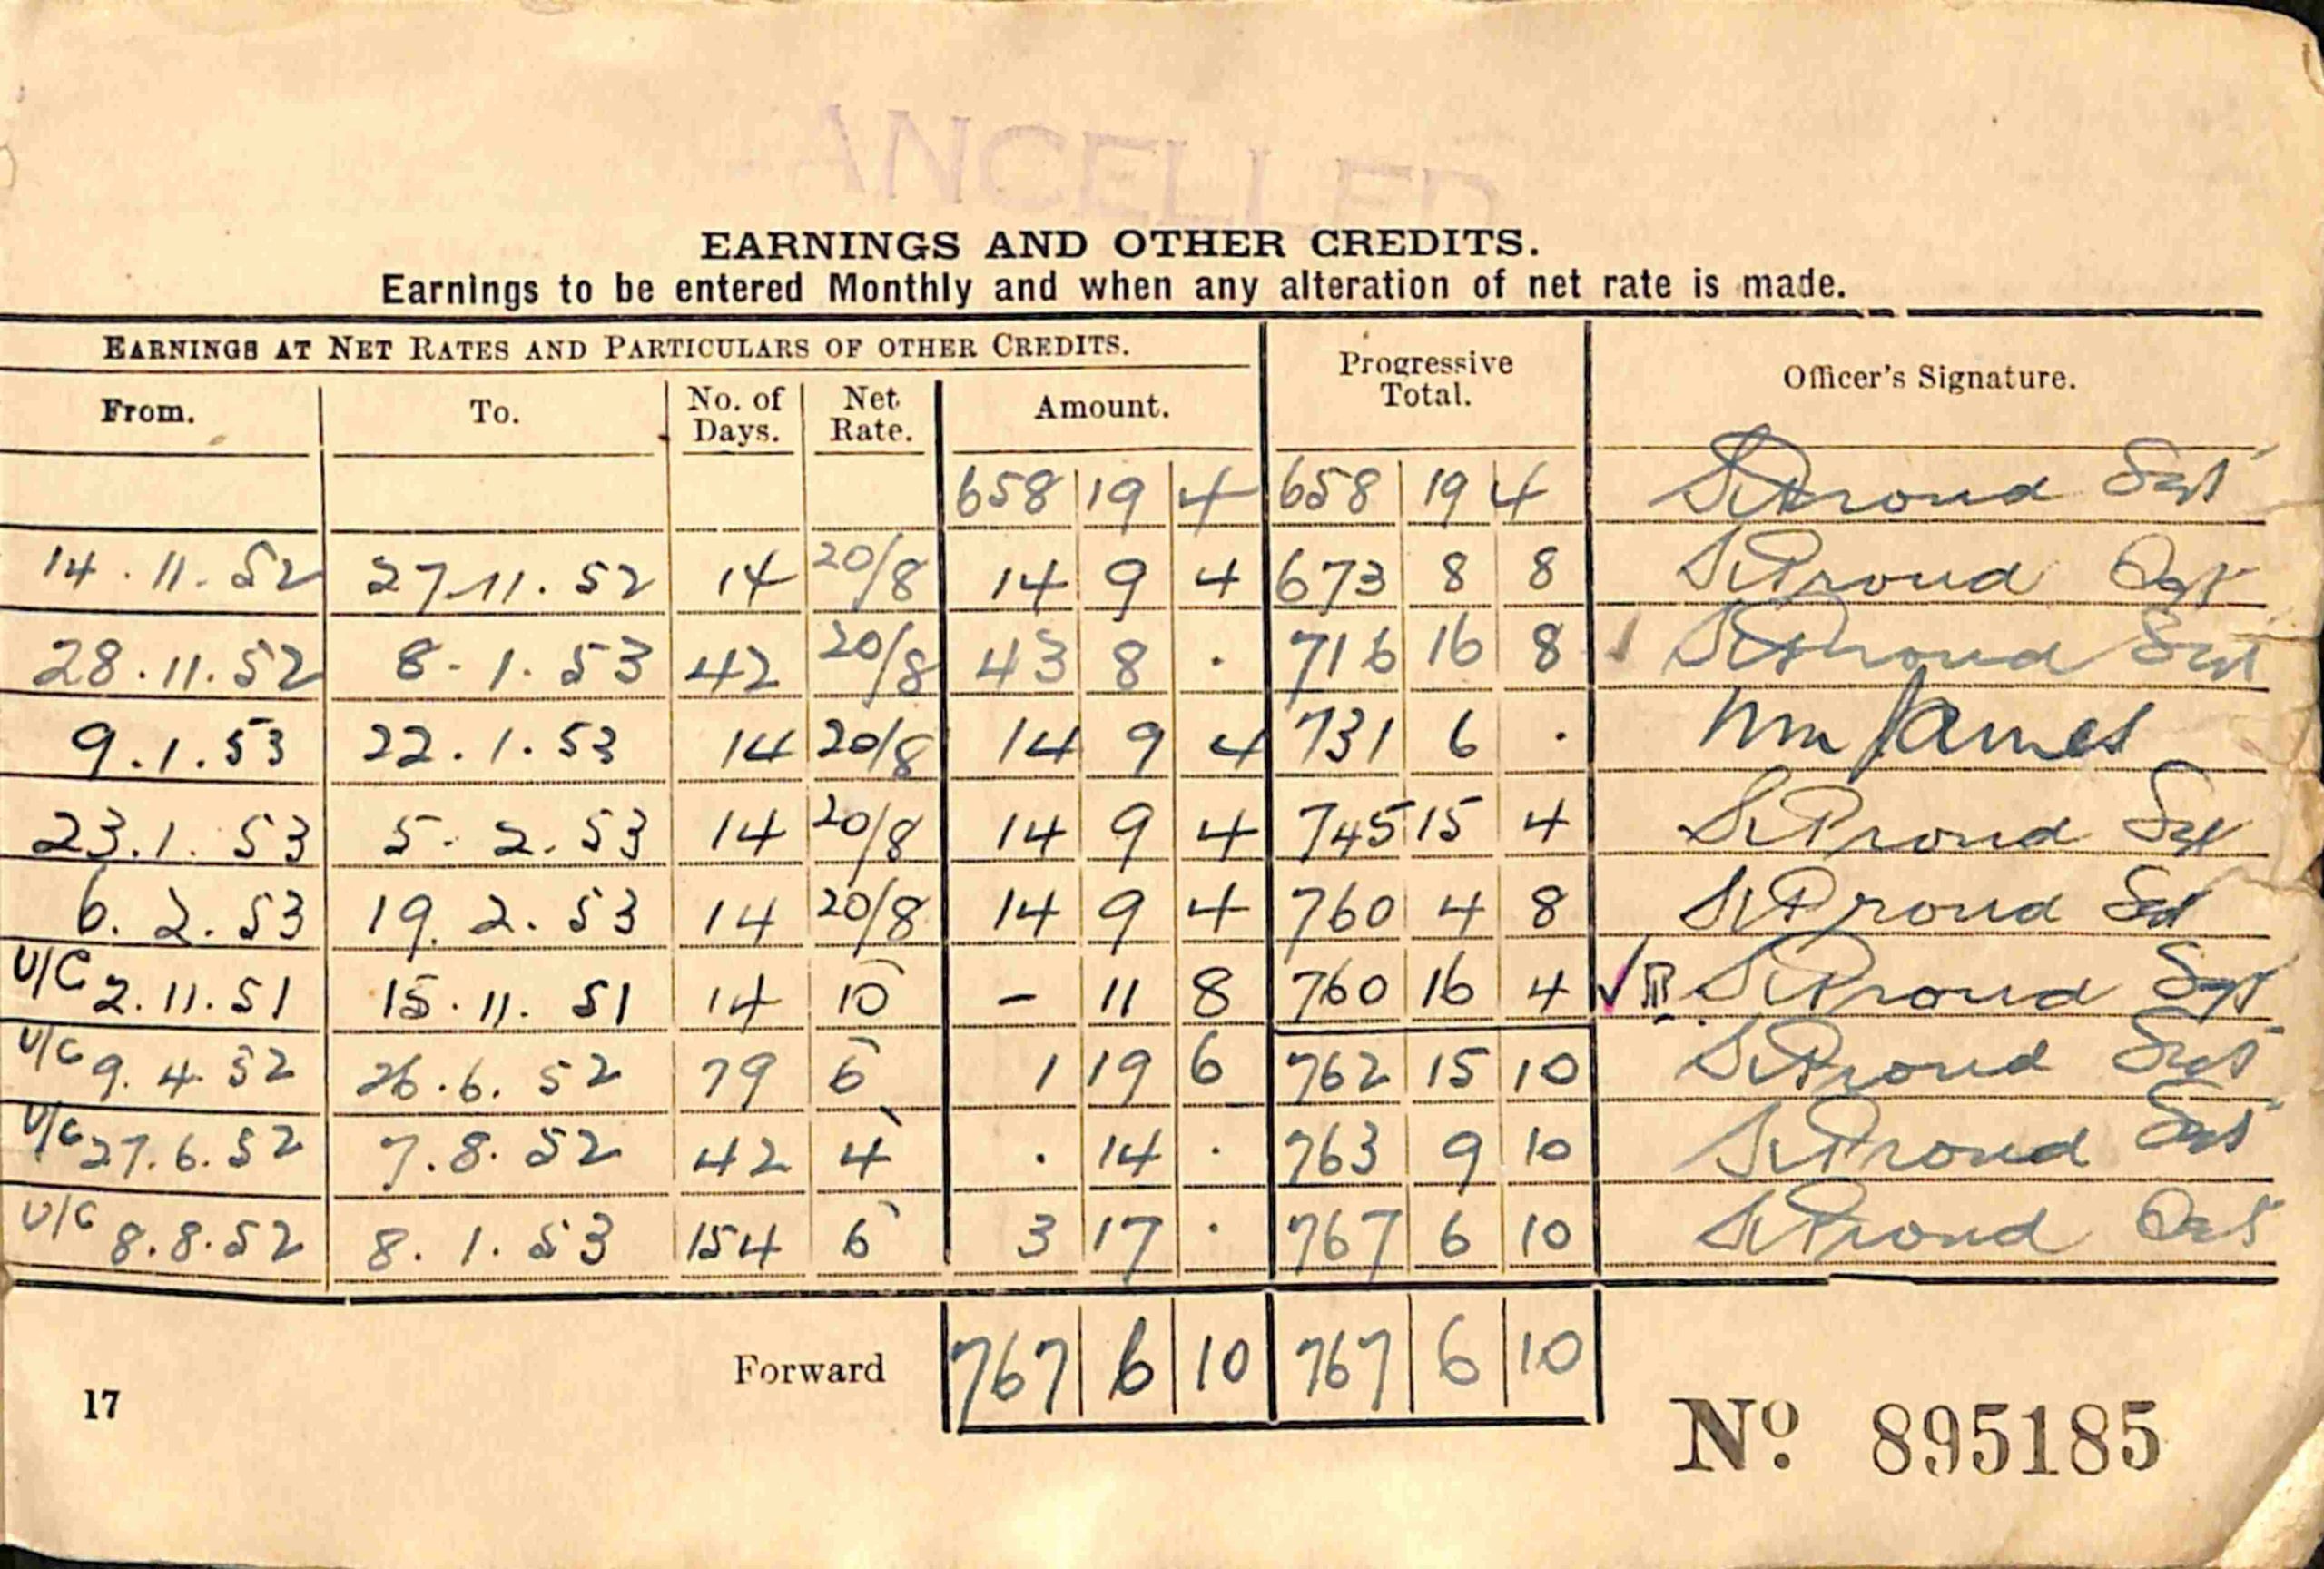 ANCELLED
EARNINGS AND OTHER CREDITS.
Earnings to be entered Monthly and when any alteration of net rate is made.
EARNINGS AT NET RATES AND PARTICULARS OF OTHER CREDITS. Progressive Total. Officer's Signature.
From. To. No. of Days. Net Rate. Amount.
658 19 4 658 19 4 Proud Sgt
14.11.52 27.11.52 14 20/8 14 9 4 673 8 8 Proud Sgt
28.11.52 8.1.53 42 20/8 43 8 . 716 16 8 Proud Sgt
9.1.53 22.1.53 14 20/8 14 9 4 731 6 . James
23.1.53 5.2.53 14 20/8 14 9 4 745 15 4 Proud Sgt
6.2.53 19.2.53 14 20/8 14 9 4 760 4 8 Proud Sgt
U/C 2.11.51 15.11.51 14 10 - 11 8 760 16 4 Proud Sgt
U/C 9.4.52 26.6.52 79 6 1 19 6 762 15 10 Proud Sgt
U/C 27.6.52 7.8.52 42 4 . 14 . 763 9 10 Proud Sgt
U/C 8.8.52 8.1.53 154 6 3 17 . 767 6 10 Proud Sgt
Forward 767 6 10 767 6 10
17
No. 895185